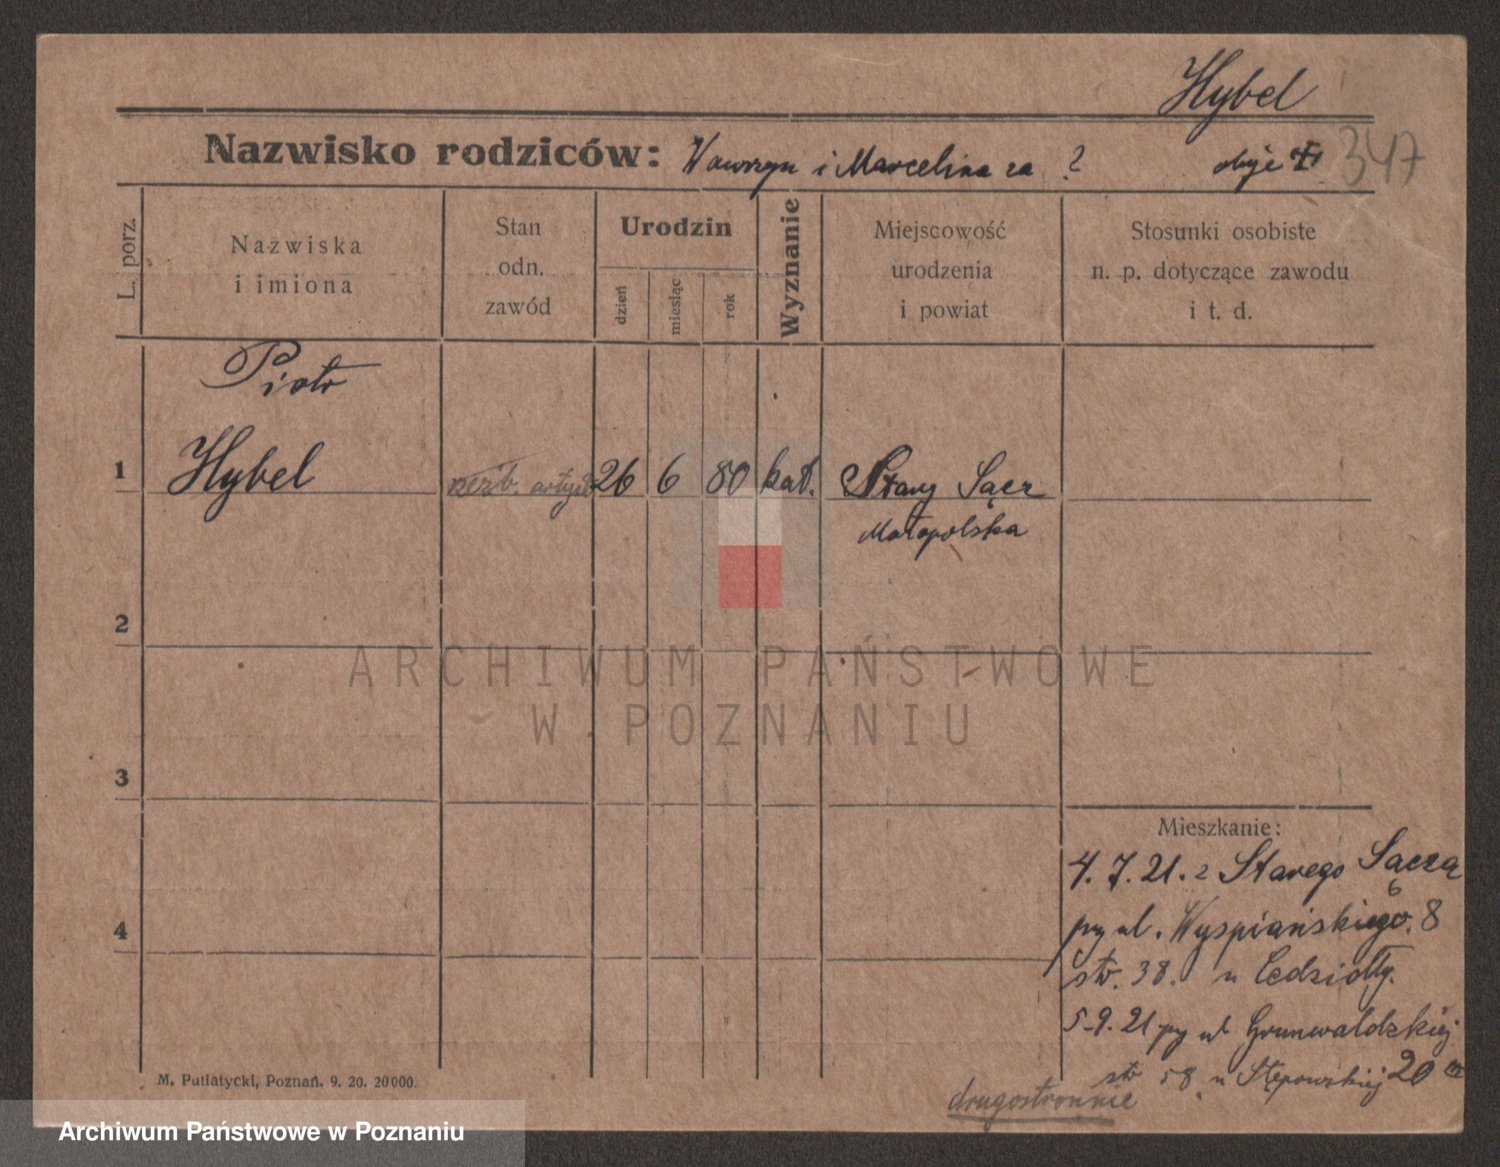 Hybel
Nazwisko rodziców: Wawrzyn i Marcelina za ? oboje 347
L. porz.
Nazwiska
i imiona
Stan
odn.
zawód
Urodzin
dzień
miesiąc
rok
Wyznanie
Miejscowość
urodzenia
i powiat
Stosunki osobiste
n. p. dotyczące zawodu
i t. d.
Piotr
1 Hybel 26 6 80 kat. Stary Sącz
Małopolska
2
ARCHIWUM PAŃSTWOWE
W POZNANIU
3
Mieszkanie:
4. 7. 21. z Starego Sącza
4 przy ul. Wyspiańskiego. 8
str. 38. u
5-9. 21 przy ul Grunwaldzkiej
str 58. u Stępowskiej 20
drugostronnie
M. Putiatycki, Poznań. 9. 20. 20000.
Archiwum Państwowe w Poznaniu